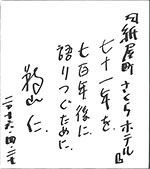 『紙屋町さくらホテル』
七十一年を
七百年後に
語りつぐために。
鵜山 仁
二〇一六・四・二七